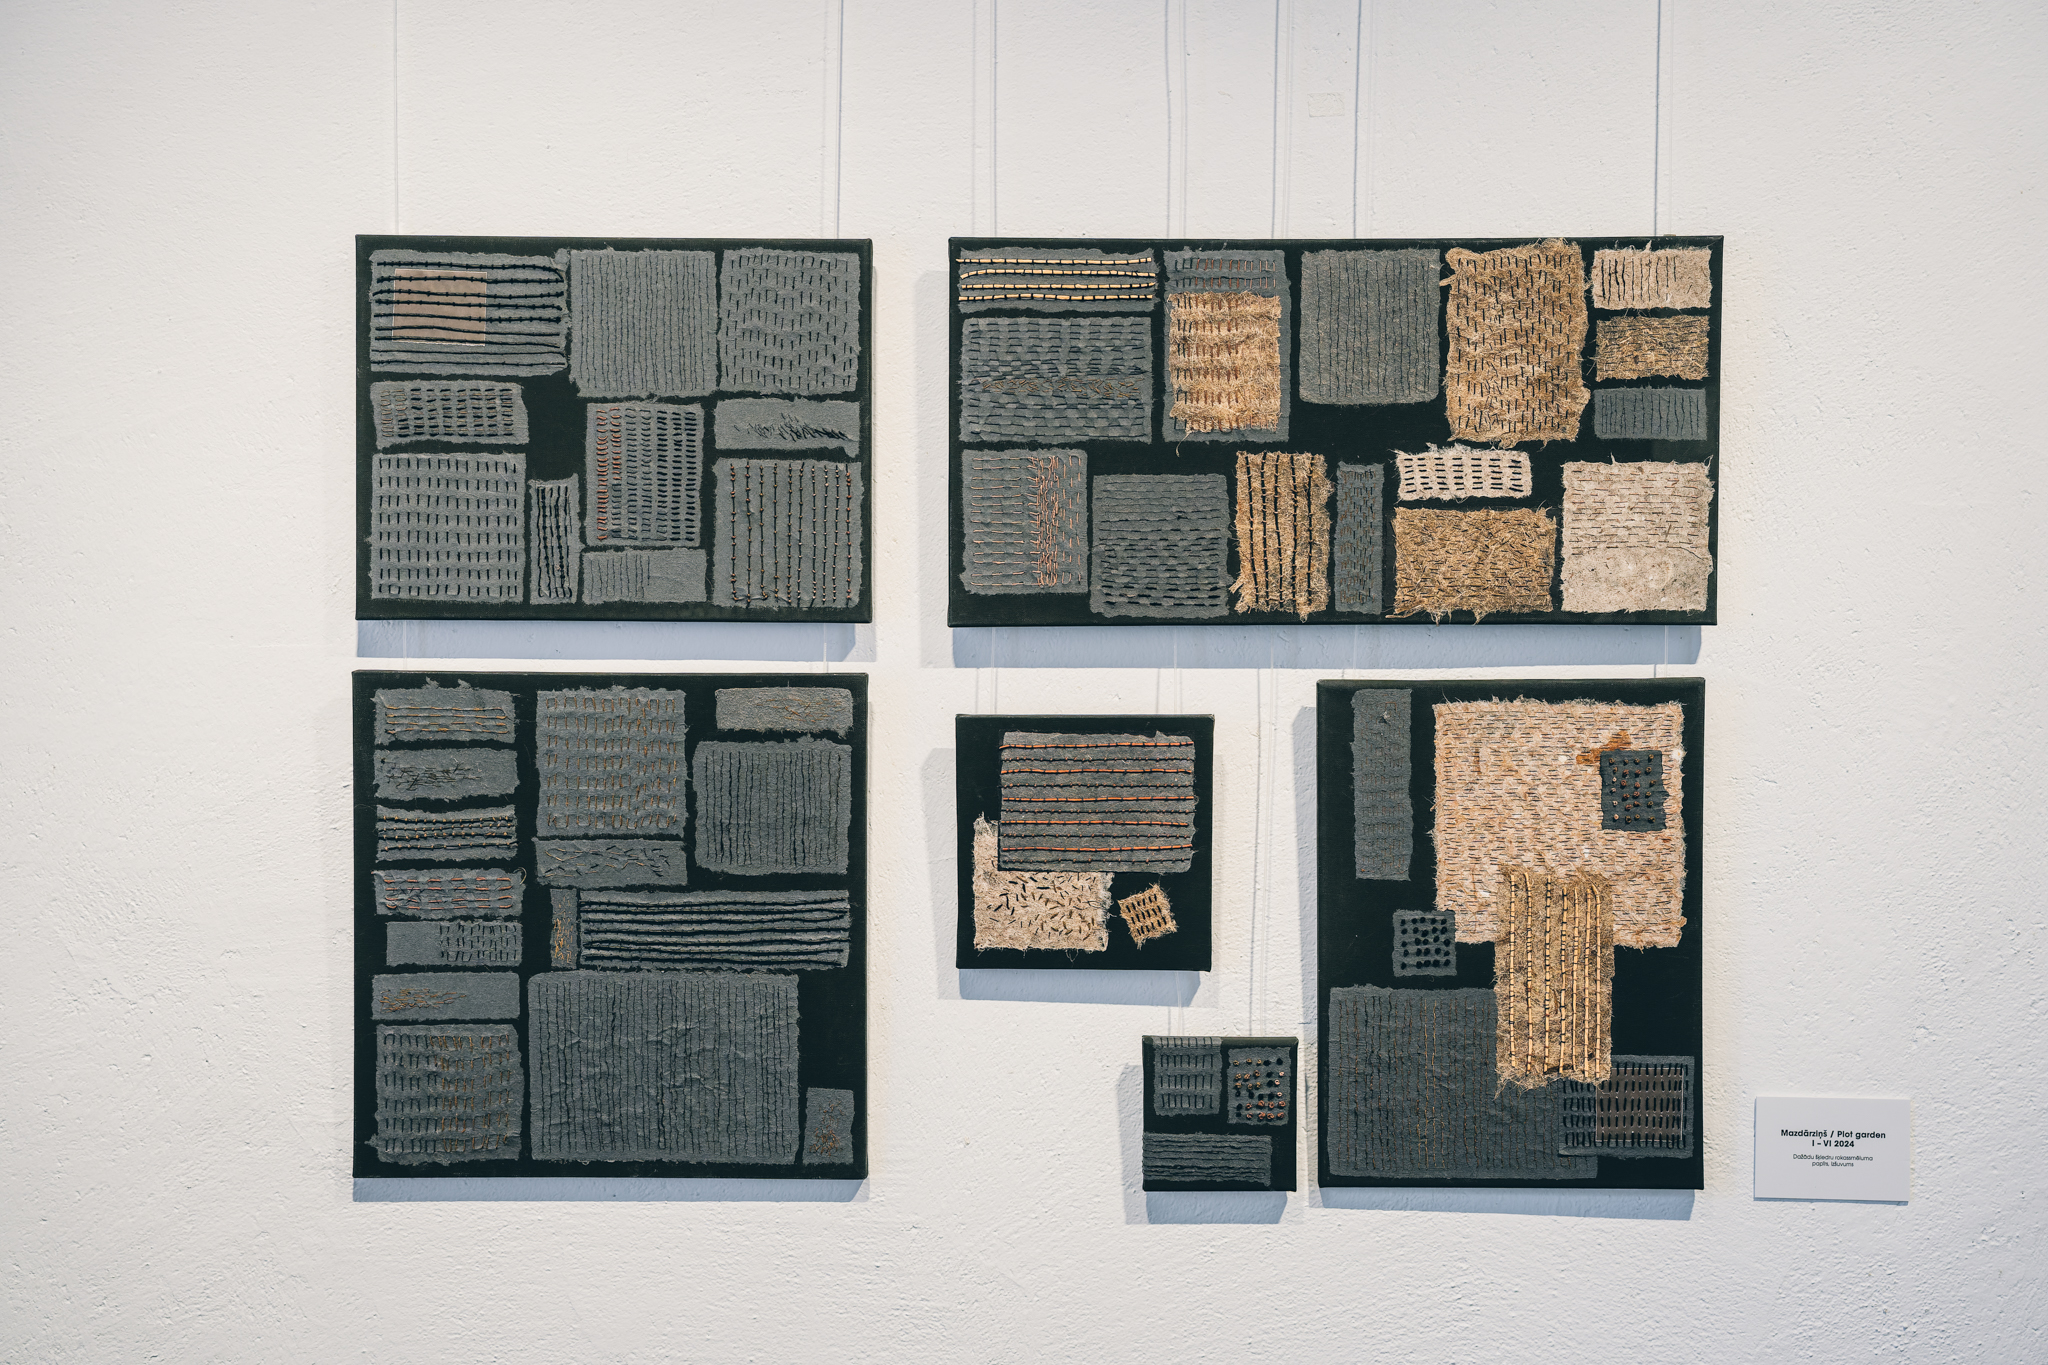 Mazdārziņš / Plot garden
I – VI 2024
Dažādu šķiedru rokassmēluma
papīrs, izšuvums